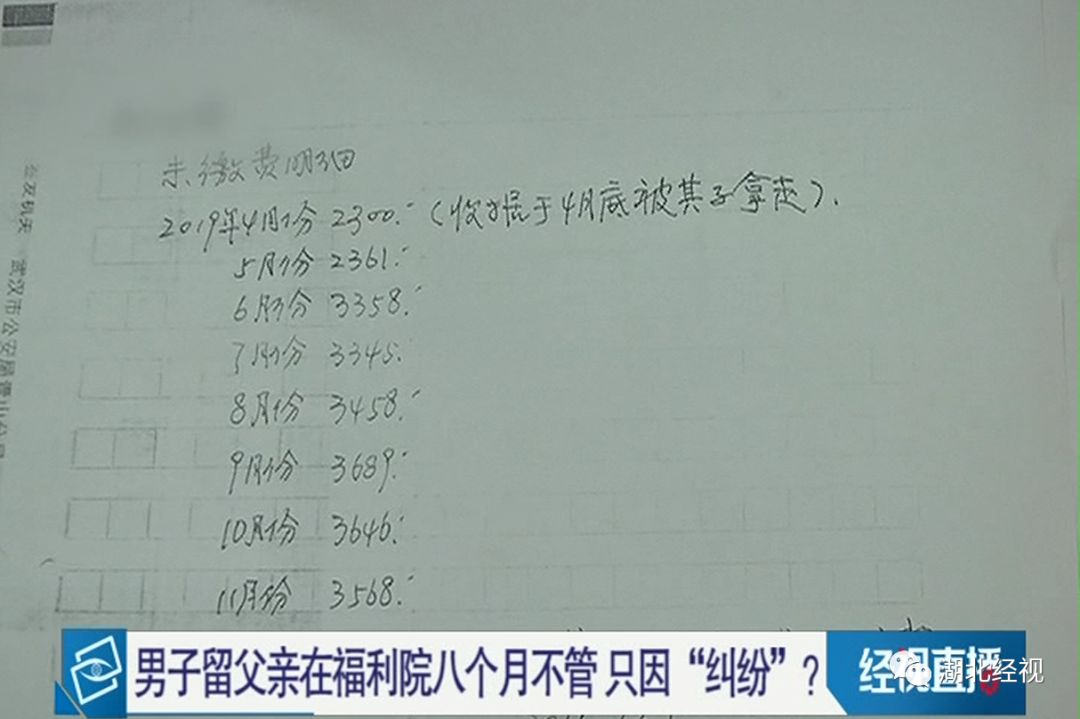 未缴费明细
2019年4月份 2300.- (收据于4月底被其子拿走).
5月份 2361.-
6月份 3358.-
7月份 3345.
8月份 3458.-
9月份 3689.-
10月份 3646.-
11月份 3568.-
武汉市公安局
男子留父亲在福利院八个月不管 只因“纠纷”?
经视直播
湖北经视